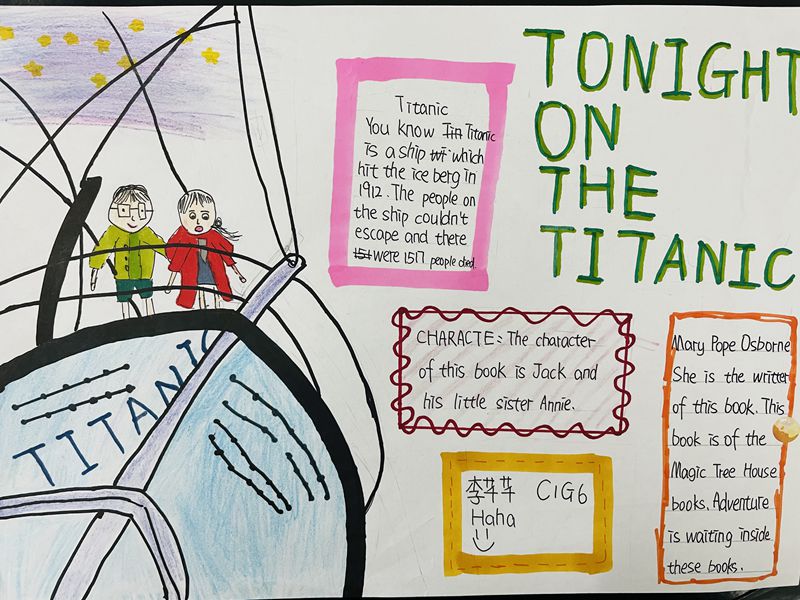 TONIGHT
ON
THE
TITANIC
Titanic
You know Titanic
is a ship which
hit the ice berg in
1912. The people on
the ship couldn't
escape and there
were 1517 people died.
CHARACTE: The character
of this book is Jack and
his little sister Annie.
Mary Pope Osborne
She is the writter
of this book. This
book is of the
Magic Tree House
books. Adventure
is waiting inside
these books.
李芊芊 C1G6
Haha
TITANIC